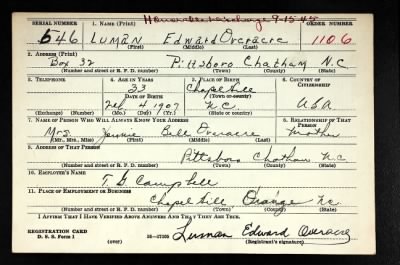 Honorable discharge 9-15-45
SERIAL NUMBER 1. NAME (Print) ORDER NUMBER
546 Luman Edward Overacre 1106
(First) (Middle) (Last)
2. ADDRESS (Print)
Box 32 Pittsboro Chatham N.C.
(Number and street or R. F. D. number) (Town) (County) (State)
3. TELEPHONE 4. AGE IN YEARS 5. PLACE OF BIRTH 6. COUNTRY OF CITIZENSHIP
33 Chapel Hill
DATE OF BIRTH (Town or county)
4 1907 N.C. USA
(Exchange) (Number) (Mo.) (Day) (Yr.) (State or country)
7. NAME OF PERSON WHO WILL ALWAYS KNOW YOUR ADDRESS 8. RELATIONSHIP OF THAT PERSON
Mrs. Bell Overacre Mother
(Mr., Mrs., Miss) (First) (Middle) (Last)
9. ADDRESS OF THAT PERSON
Pittsboro Chatham N.C.
(Number and street or R. F. D. number) (Town) (County) (State)
10. EMPLOYER'S NAME
Campbell
11. PLACE OF EMPLOYMENT OR BUSINESS
Chapel Hill Orange N.C.
(Number and street or R. F. D. number) (Town) (County) (State)
I AFFIRM THAT I HAVE VERIFIED ABOVE ANSWERS AND THAT THEY ARE TRUE.
REGISTRATION CARD
D. S. S. Form 1 (over) 16—17105 Luman Edward Overacre
(Registrant's signature)